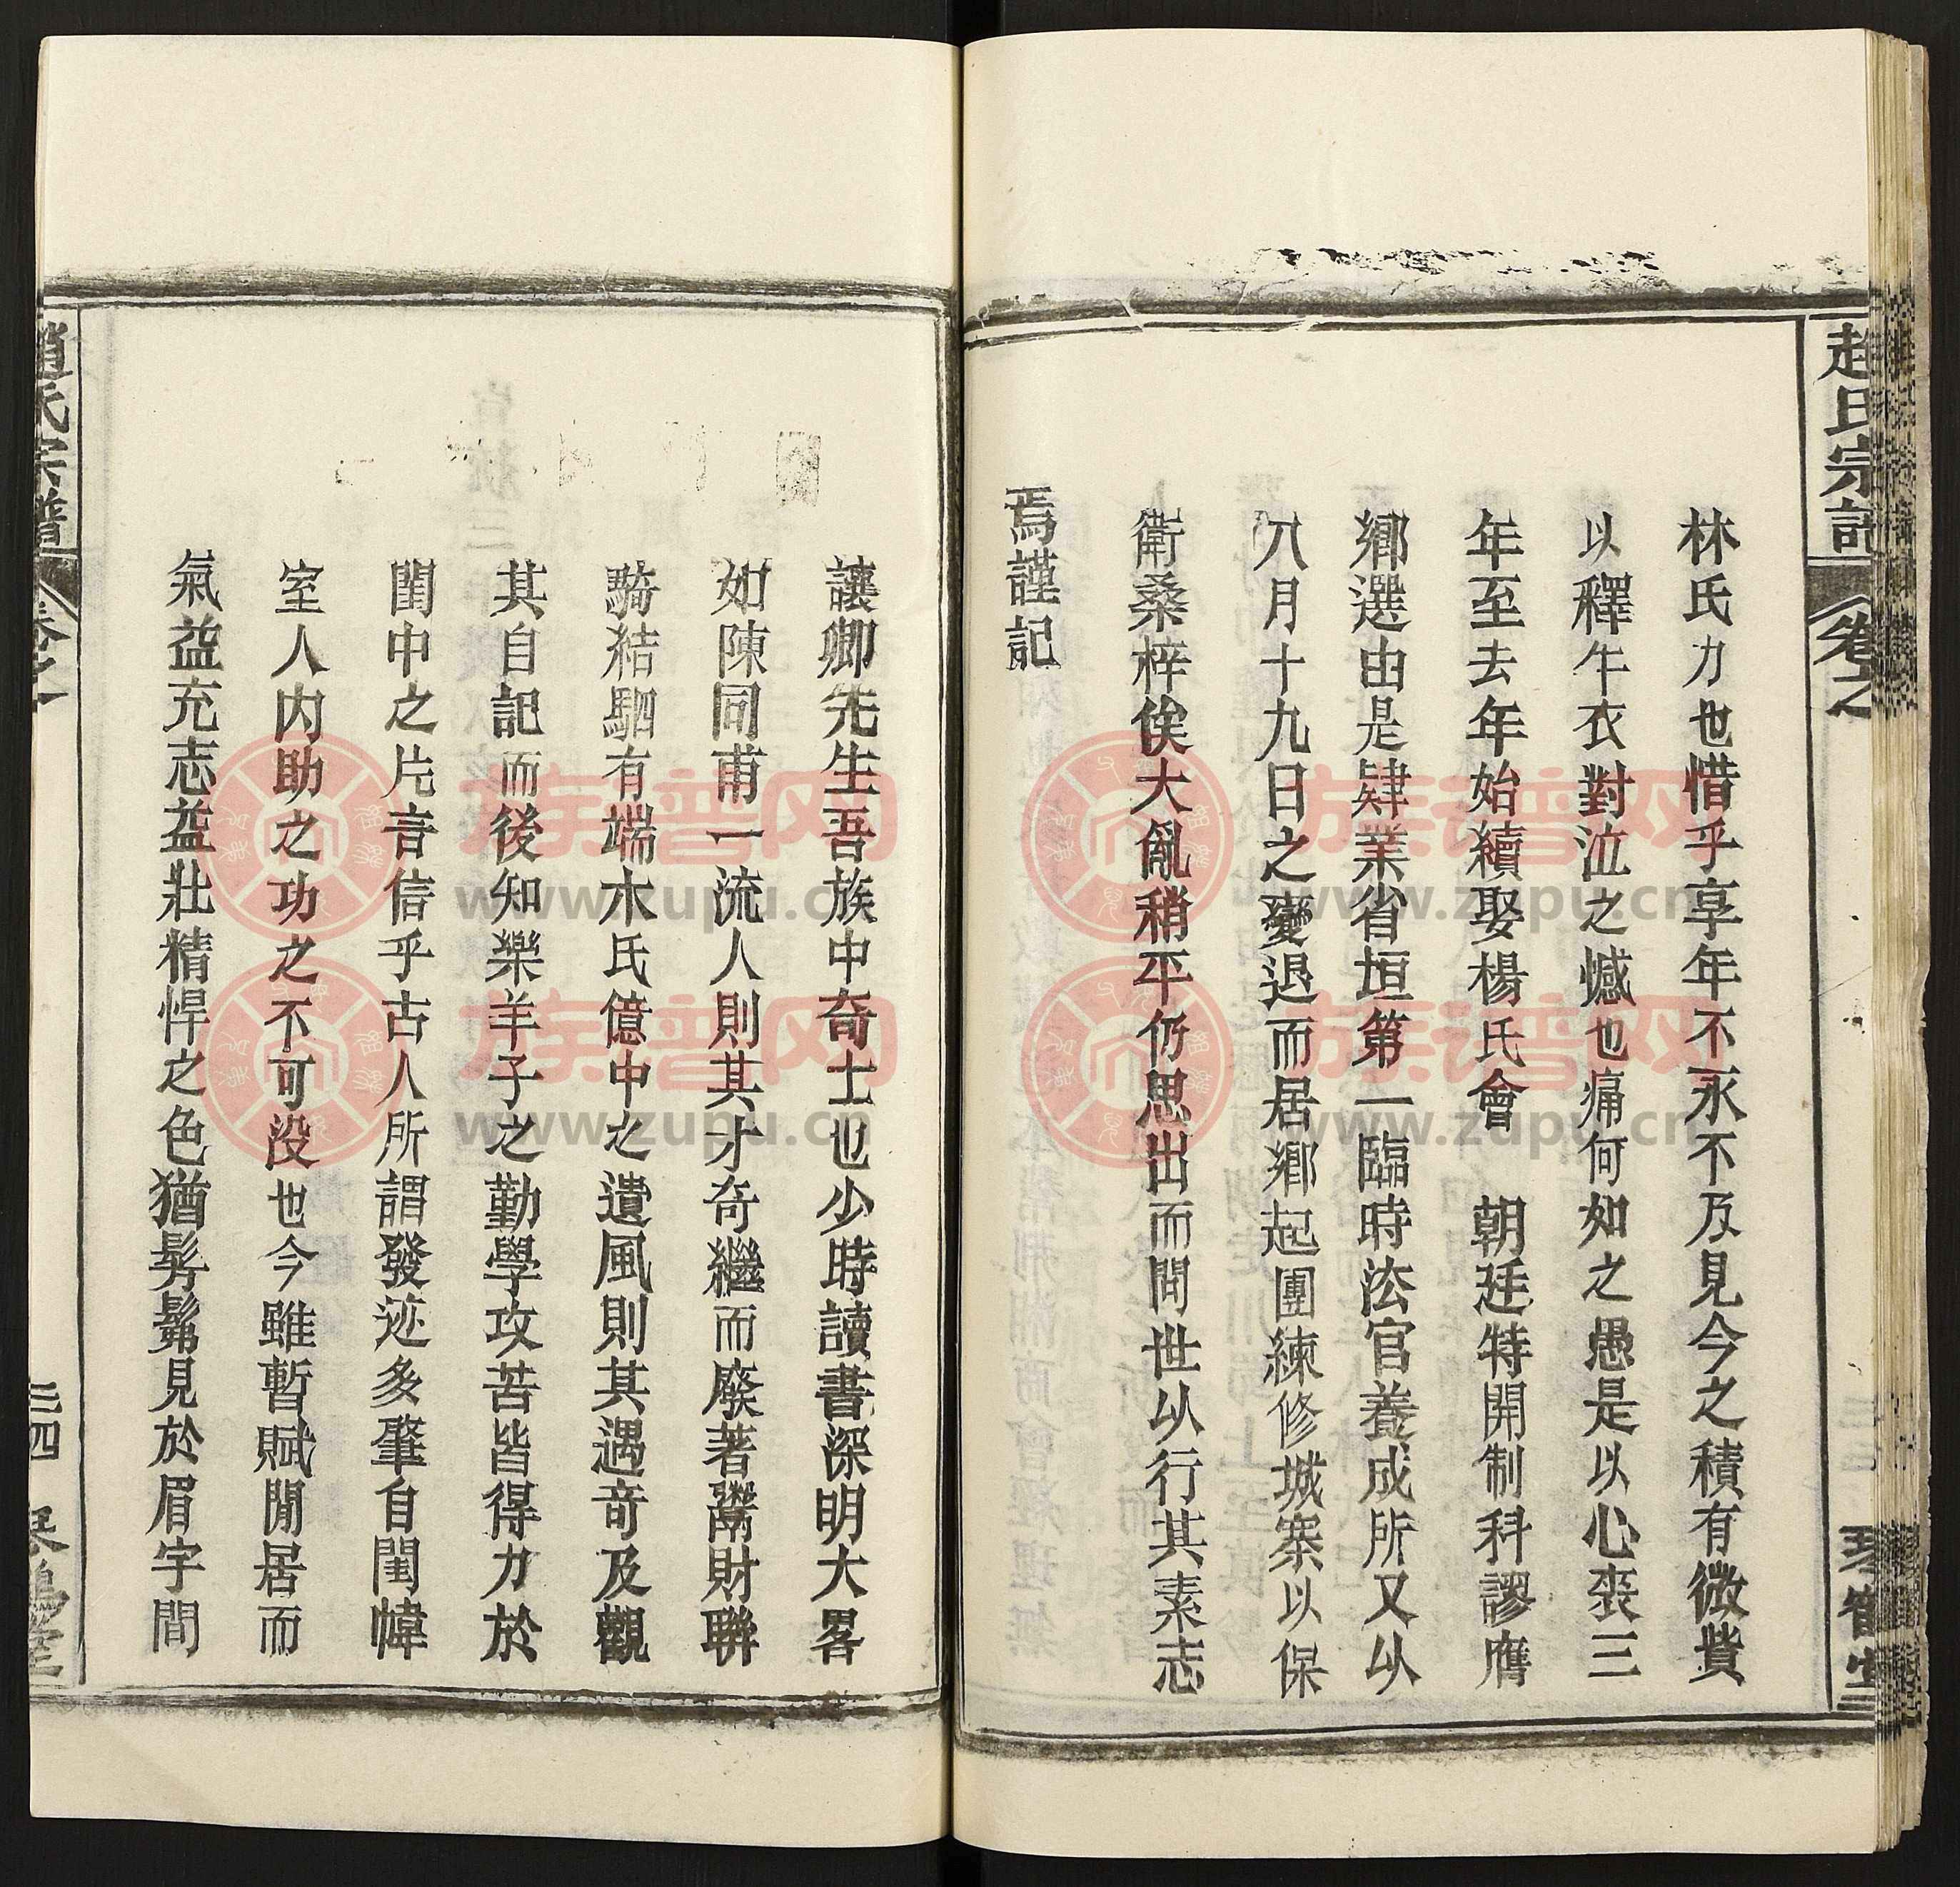 趙氏宗譜
卷之
琴鶴堂
林氏力也惜乎享年不永不及見今之積有微貲
以釋牛衣對泣之憾也痛何如之愚是以心喪三
年至去年始續娶楊氏會　朝廷特開制科謬膺
鄉選由是肄業省垣第一臨時法官養成所又以
八月十九日之變退而居鄉起團練修城寨以保
衛桑梓俟大亂稍平仍思出而問世以行其素志
焉謹記
讓卿先生吾族中奇士也少時讀書深明大畧
如陳同甫一流人則其才奇繼而廢著鬻財聯
騎結駟有端木氏億中之遺風則其遇奇及觀
其自記而後知樂羊子之勤學攻苦皆得力於
閨中之片言信乎古人所謂發迹多肇自閨幃
室人內助之功之不可没也今雖暫賦閒居而
氣益充志益壯精悍之色猶髣髴見於眉宇間
趙氏宗譜
卷之
三四
琴鶴堂
族譜网
www.zupu.cn
族譜网
www.zupu.cn
族譜网
www.zupu.cn
族譜网
www.zupu.cn